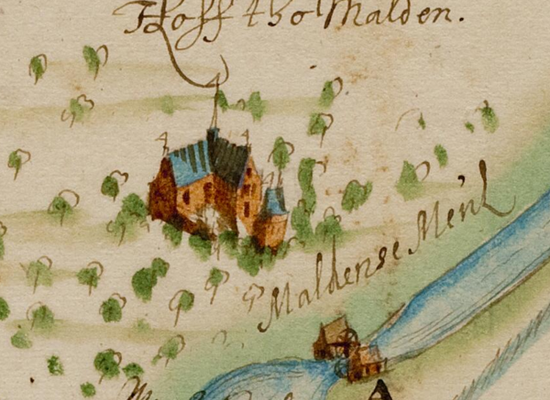 Hoff tho Malden.
Maldense Meul
A